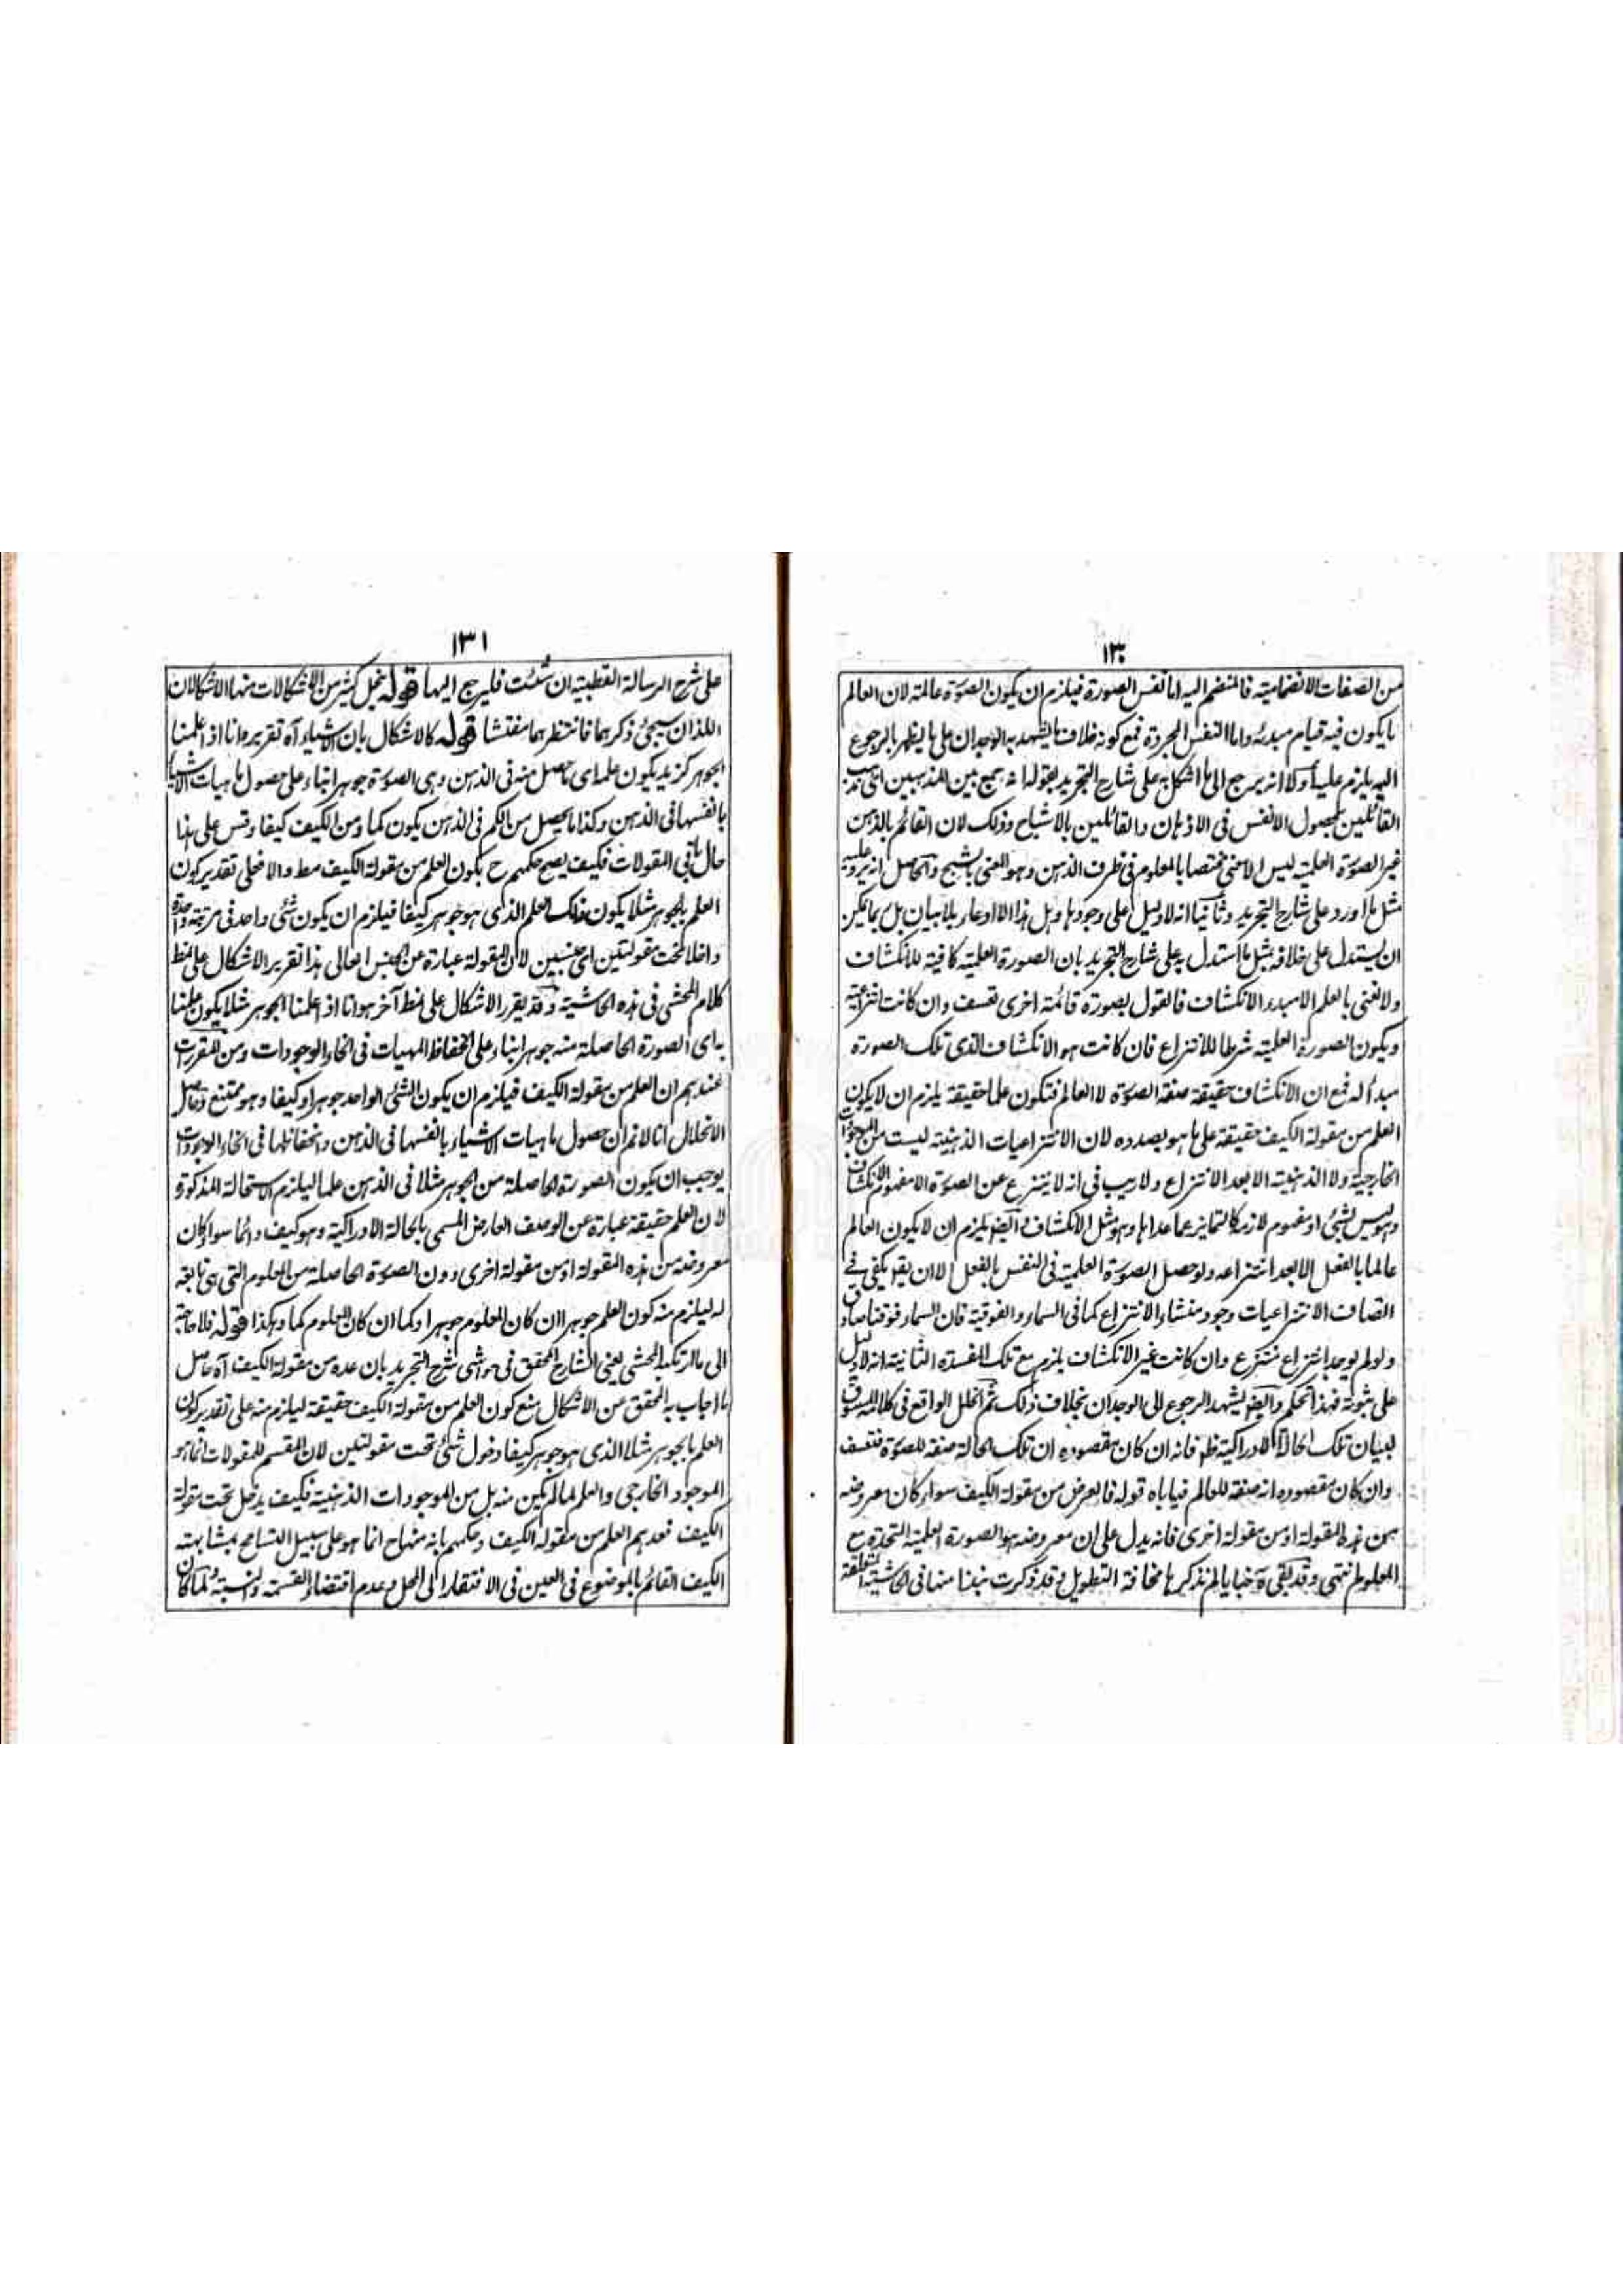 ١٣٠
من الصفات الانضمامية فالمنضم اليه اما نفس الصورة فيلزم ان يكون الصورة عالمة لان العالم
ما يكون فيه قيام مبدئه واما النفس المجردة فمع كونه خلاف ما يشهد به الوجدان على ما يظهر بالرجوع
اليه يلزم عليه اولا انه يرجع الى ما اشكل به على شارح التجريد بقوله انه جمع بين المذهبين اى مذهب
القائلين بحصول الانفس فى الاذهان والقائلين بالاشباح وذلك لان القائم بالذهن
غير الصورة العلمية ليس الا معنى مختصا بالمعلوم فى ظرف الذهن وهو المعنى بالشبح والحاصل انه يرد عليه
مثل ما اورد على شارح التجريد وثانيا انه لا دليل على وجودها وهل هذا الا ادعاء بلا بيان بل ربما يمكن
ان يستدل على خلافه بمثل ما استدل به على شارح التجريد بان الصورة العلمية كافية للانكشاف
ولا نعنى بالعلم الا مبدء الانكشاف فالقول بصورة قائمة اخرى تعسف وان كانت انتزاعية
ويكون الصورة العلمية شرطا للانتزاع فان كانت هو الانكشاف الذى تلك الصورة
مبدأ له فمع ان الانكشاف حقيقة صفة الصورة لا العالم فتكون علما حقيقة يلزم ان لا يكون
العلم من مقولة الكيف حقيقة على ما هو بصدده لان الانتزاعيات الذهنية ليست من الموجودات
الخارجية ولا الذهنية الا بعد الانتزاع ولا ريب فى انه لا ينتزع عن الصورة الا مفهوم الانكشاف
وهو ليس بشئ او مفهوم لازم له كالتمايز عما عداها وهو مثل الانكشاف وايضا يلزم ان لا يكون العالم
عالما بالفعل الا بعد انتزاعه ولو حصل الصورة العلمية فى النفس بالفعل الا ان يقد يكفى فى
اتصاف الانتزاعيات وجود منشاء الانتزاع كما فى السماء والفوقية فان السماء فوقنا صادق
ولو لم يوجد بانتزاع منتزع وان كانت غير الانكشاف يلزم مع تلك المفسدة الثانية انه لا دليل
على ثبوته فهذا تحكم وايضا يشهد الرجوع الى الوجدان بخلاف ذلك ثم الخلل الواقع فى كلامه المسوق
لبيان تلك الحالة الادراكية ظم فانه ان كان مقصوده ان تلك الحالة صفة للصورة فتعسف
وان كان مقصوده انه صفة للعالم فياباه قوله فالعرض من مقولة الكيف سواء كان معروضه
من هذه المقولة او من مقولة اخرى فانه يدل على ان معروضه هو الصورة العلمية المتحدة مع
المعلوم انتهى وقد بقى خبايا لم نذكرها مخافة التطويل وقد ذكرت نبذا منها فى الحاشية المتعلقة
١٣١
على شرح الرسالة القطبية ان شئت فليرجع اليها قوله ينحل كثير من الاشكالات منها الاشكالان
اللذان سيجئ ذكرهما فانتظرهما مفتشا قوله كالاشكال بان الاشياء آه تقريره انا اذا علمنا
الجوهر كزيد يكون علمه اى ما يحصل منه فى الذهن وهى الصورة جوهرا بناء على حصول ماهيات الاشياء
بانفسها فى الذهن وكذا ما يحصل من الكم فى الذهن يكون كما ومن الكيف كيفا وقس على هذا
حال باقى المقولات فكيف يصح حكمهم ح بكون العلم من مقولة الكيف مط والا فعلى تقدير كون
العلم بالجوهر مثلا يكون ذلك العلم الذى هو جوهر كيفا فيلزم ان يكون شئ واحد فى مرتبة واحدة
داخلا تحت مقولتين اى جنسين لان المقولة عبارة عن الجنس العالى هذا تقرير الاشكال على نمط
كلام المحشى فى هذه الحاشية وقد يقرر الاشكال على نمط آخر هو انا اذا علمنا الجوهر مثلا يكون علمنا
به اى الصورة الحاصلة منه جوهرا بناء على انحفاظ المهيات فى انحاء الوجودات ومن المقررات
عندهم ان العلم من مقولة الكيف فيلزم ان يكون الشئ الواحد جوهرا وكيفا وهو ممتنع وحاصل
الانحلال انا لا نم ان حصول ماهيات الاشياء بانفسها فى الذهن وانحفاظها فى انحاء الوجودات
يوجب ان يكون الصورة الحاصلة من الجوهر مثلا فى الذهن علما ليلزم الاستحالة المذكورة
لان العلم حقيقة عبارة عن الوصف العارض المسمى بالحالة الادراكية وهو كيف دائما سواء كان
معروضه من هذه المقولة او من مقولة اخرى دون الصورة الحاصلة من المعلوم التى هى تابعة
له ليلزم منه كون العلم جوهرا ان كان المعلوم جوهرا وكما ان كان المعلوم كما وهكذا قوله فلا حاجة
الى ما ارتكبه المحشى يعنى الشارح المحقق فى حواشى شرح التجريد بان عده من مقولة الكيف آه حاصل
ما اجاب به المحقق عن الاشكال منع كون العلم من مقولة الكيف حقيقة ليلزم منه على تقدير كون
العلم بالجوهر مثلا الذى هو جوهر كيفا دخول شئ تحت مقولتين لان المقسم للمقولات انما هو
الموجود الخارجى والعلم لما لم يكن منه بل من الموجودات الذهنية فكيف يدخل تحت مقولة
الكيف فعدهم العلم من مقولة الكيف وحكمهم بانه منها ح انما هو على سبيل التسامح بمشابهته
الكيف القائم بالموضوع فى العين فى الافتقار الى المحل وعدم اقتضاء القسمة والنسبة ولما كان